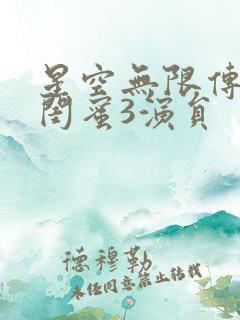 星空無限傳
閨蜜3-演員
德穆勒
未任同意禁止轉載